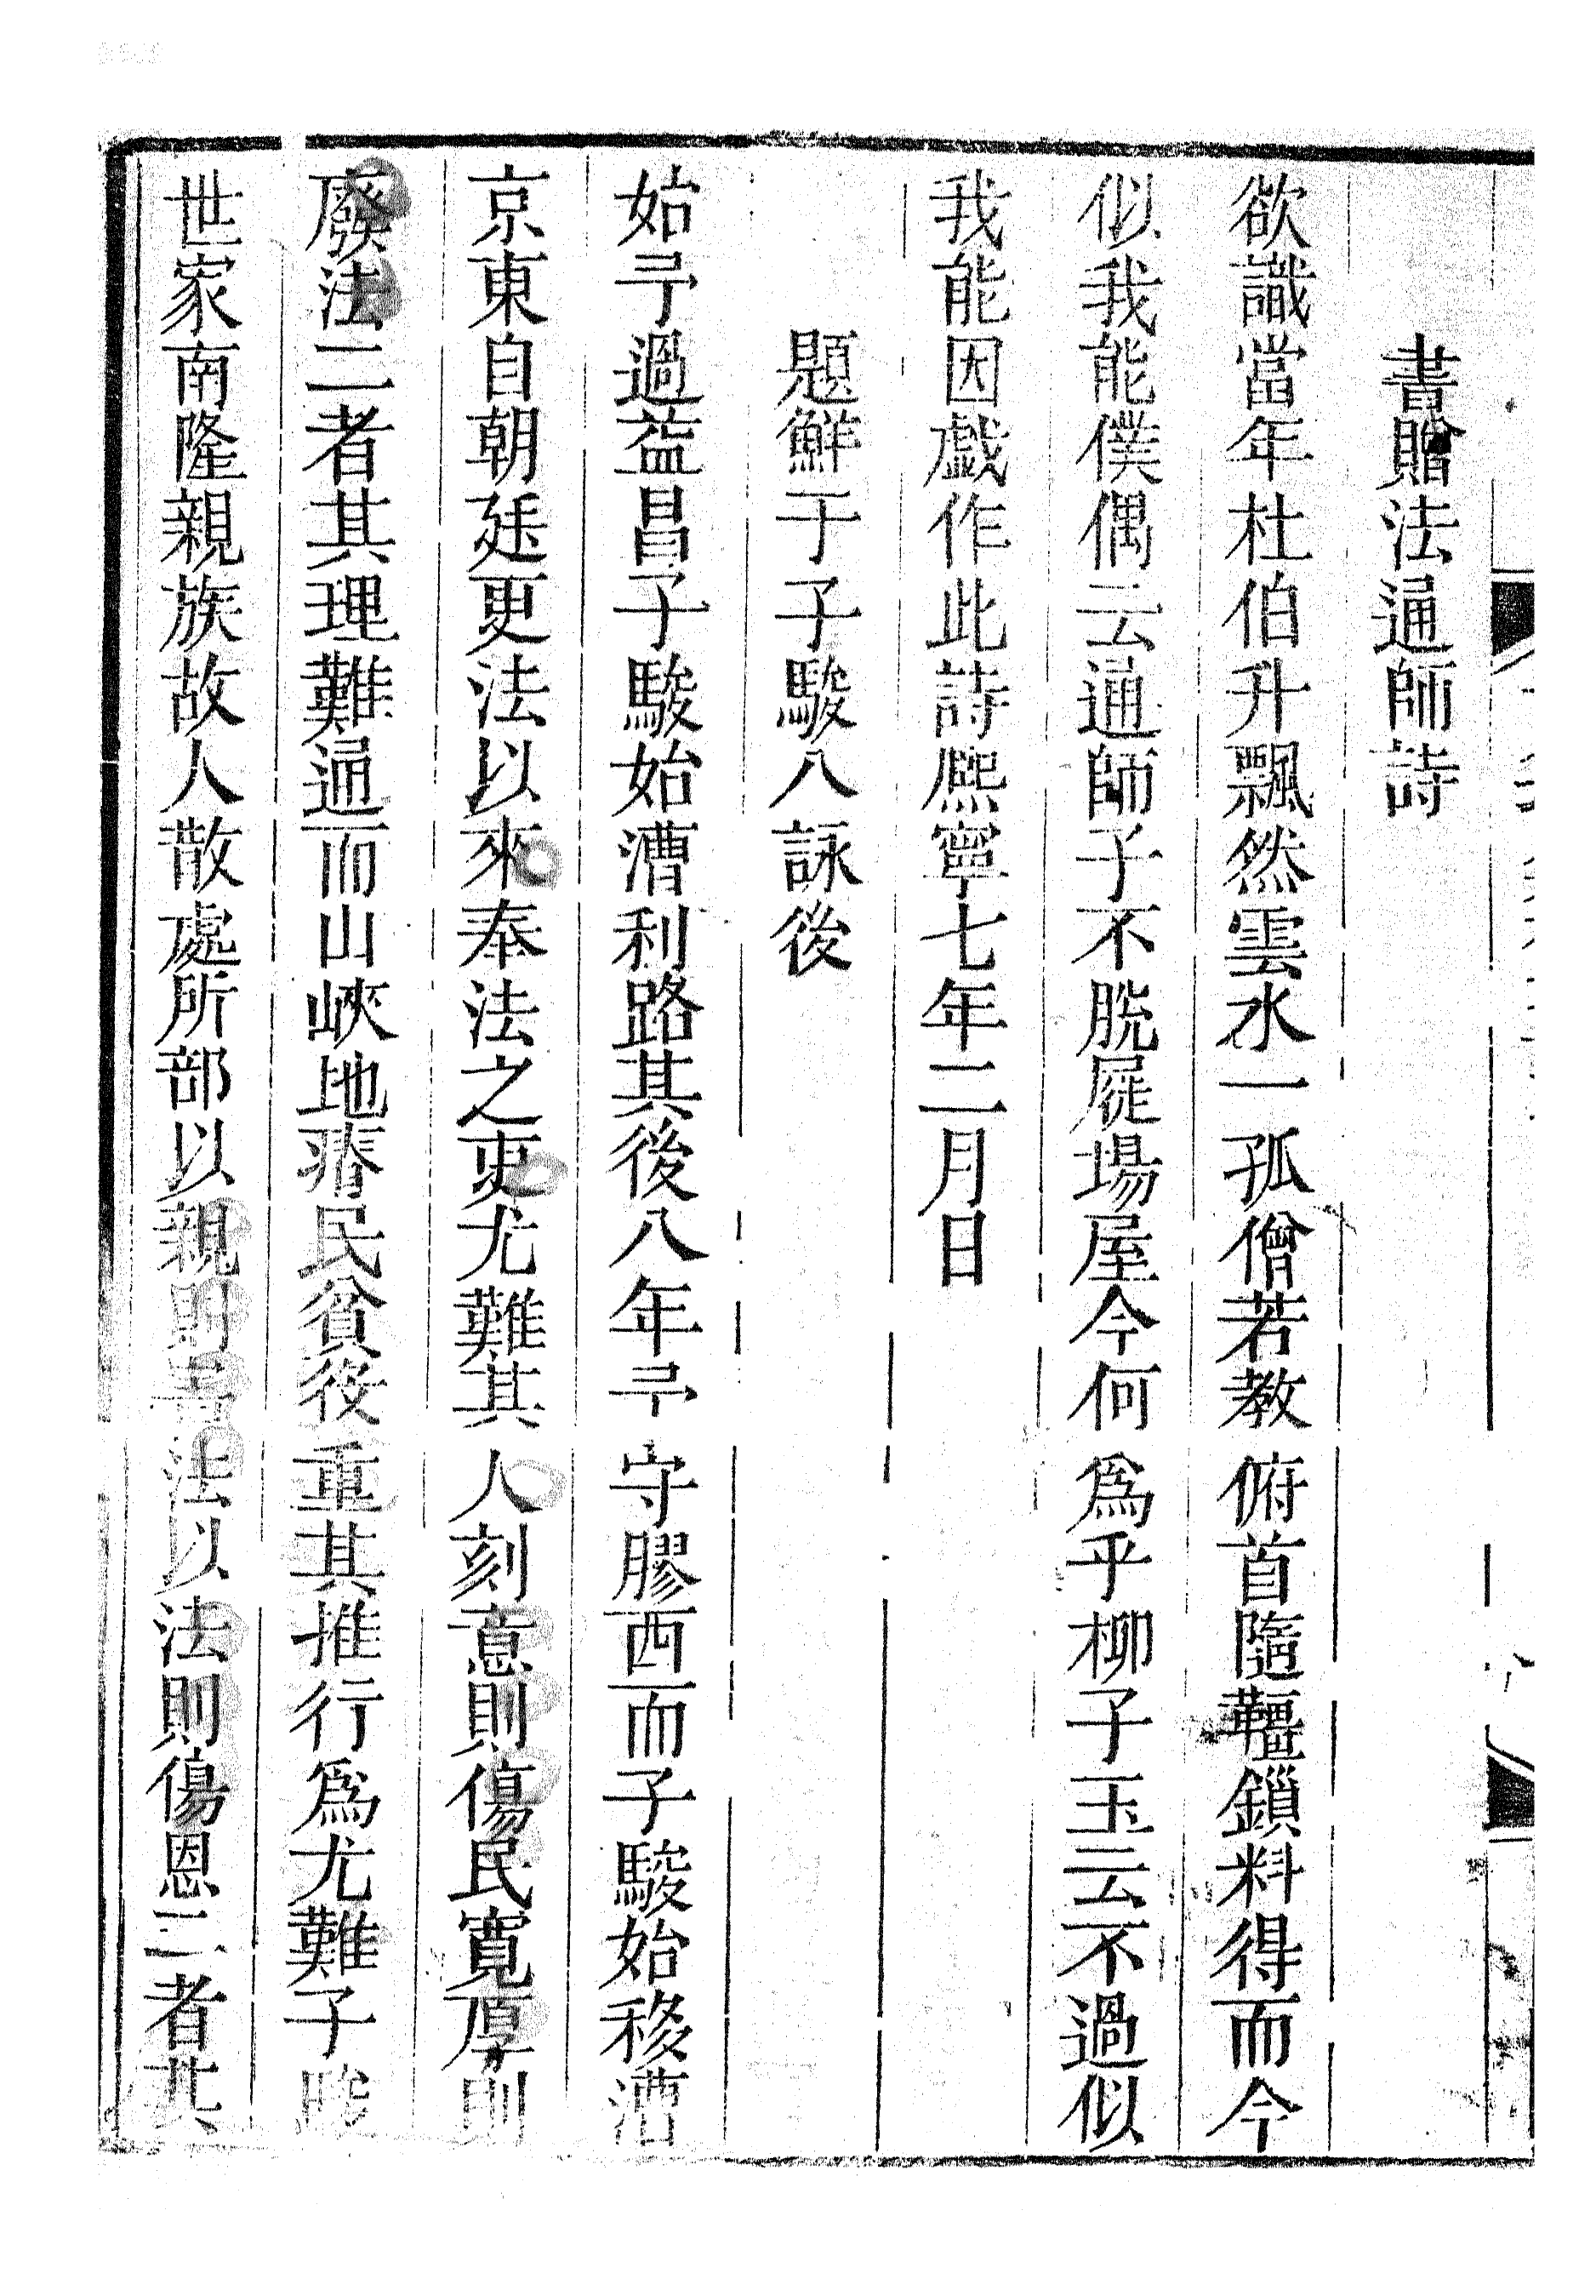 書贈法通師詩
欲識當年杜伯升飄然雲水一孤僧若教俯首隨韁鎖料得而今
似我能僕偶云通師子不脫屣場屋今何爲乎柳子玉云不過似
我能因戲作此詩熙寧七年二月日
題鮮于子駿八詠後
始予過益昌子駿始漕利路其後八年予守膠西而子駿始移漕
京東自朝廷更法以來奉法之吏尤難其人刻意則傷民寬厚則
廢法二者其理難通而山峽地瘠民貧役重其推行爲尤難子駿
世家南隆親族故人散處所部以親則害法以法則傷恩二者其